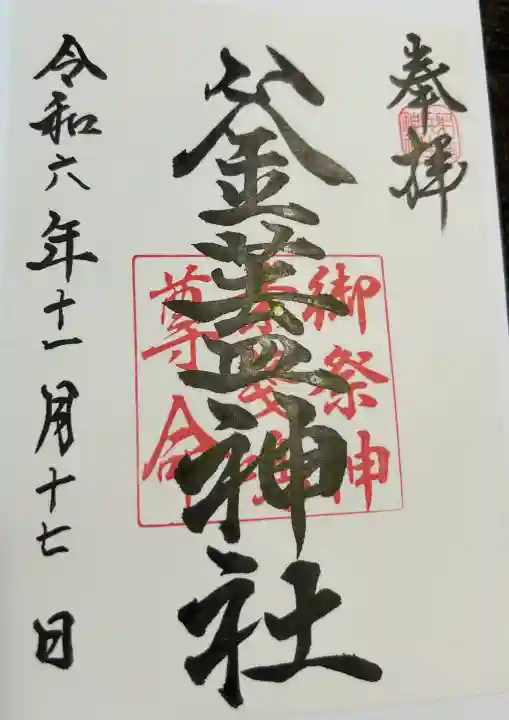 奉拝
釜蓋神社
御祭神
尊命
令和六年十一月十七日